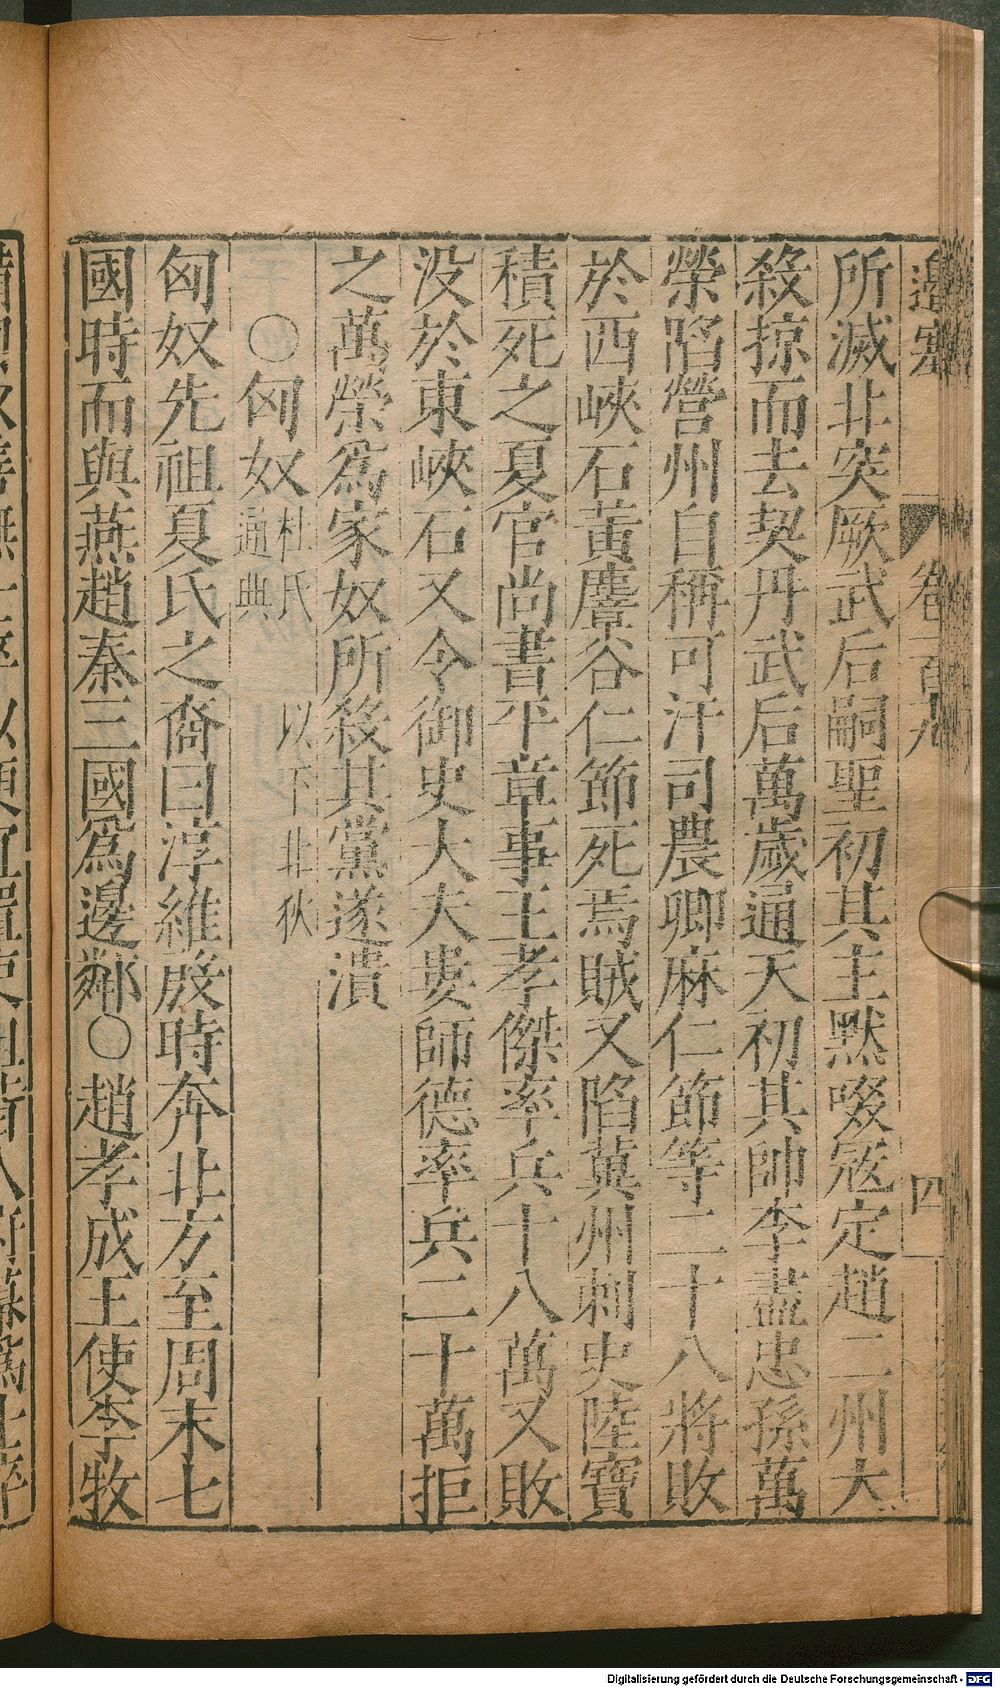 邊塞 卷一百九 四
所滅北突厥武后嗣聖初其主默啜寇定趙二州大
殺掠而去契丹武后萬歲通天初其帥李盡忠孫萬
榮陷營州自稱可汗司農卿麻仁節等二十八將敗
於西峽石黃麞谷仁節死焉賊又陷冀州刺史陸寶
積死之夏官尚書平章事王孝傑率兵十八萬又敗
没於東峽石又令御史大夫婁師德率兵二十萬拒
之萬榮爲家奴所殺其黨遂潰
○匈奴 杜氏通典 以下北狄
匈奴先祖夏氏之裔曰淳維殷時奔北方至周末七
國時而與燕趙秦三國爲邊鄰○趙孝成王使李牧
Digitalisierung gefördert durch die Deutsche Forschungsgemeinschaft - DFG